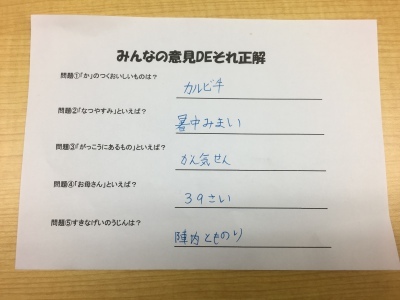 みんなの意見DEそれ正解
問題①「か」のつくおいしいものは？
カルビ牛
問題②「なつやすみ」といえば？
暑中みまい
問題③「がっこうにあるもの」といえば？
かん気せん
問題④「お母さん」といえば？
39さい
問題⑤すきなげいのうじんは？
陣内とものり